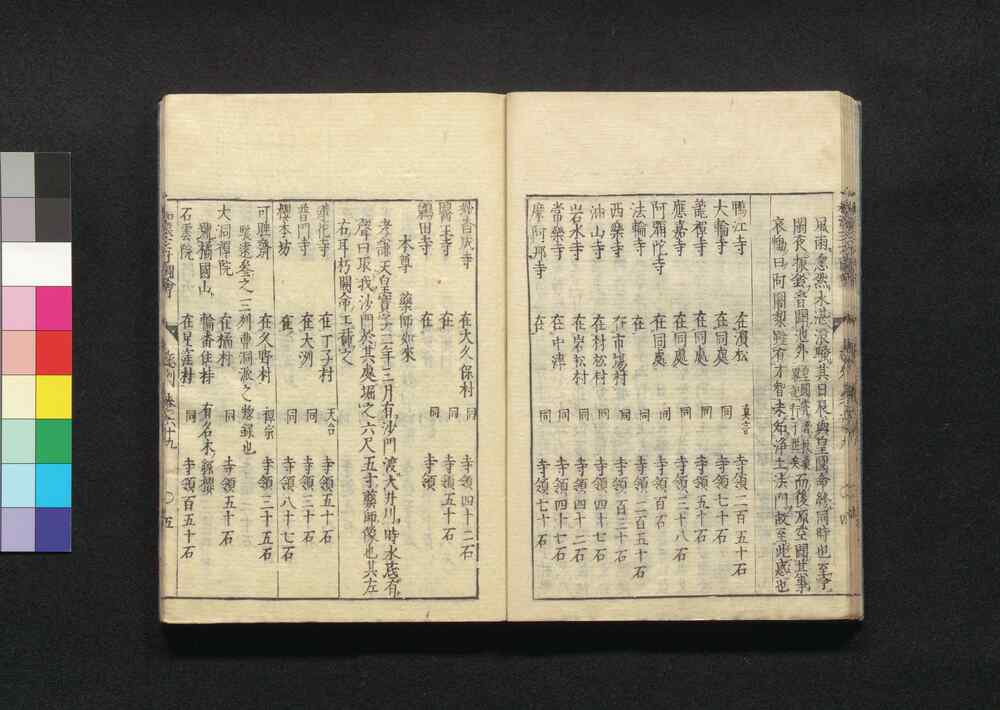 風雨忽然水湛浪曉其日辰與皇圓命終同時也至寺
閑夜振鈴音聞池外
而後源空聞其事
哀慟曰阿闍梨雖有才智未知淨土法門故至此惑也
鴨江寺 在濱松 真言 寺領二百五十石
大輪寺 在同處 同 寺領七十石
龍禪寺 在同處 同 寺領五十石
應嘉寺 在同處 同 寺領三十八石
阿彌陀寺 在同處 同 寺領百石
法輪寺 在 同 寺領二百五十石
西樂寺 在市場村 同 寺領百三十石
油山寺 在村松村 同 寺領四十七石
岩水寺 在岩松村 同 寺領四十二石
常樂寺 在中津 同 寺領四十七石
摩阿那寺 在 同 寺領七十石
妙音院寺 在大久保村 同 寺領四十二石
醫王寺 在 同 寺領五十石
鶴田寺 在 同 寺領
本尊 藥師如來
孝謙天皇寶字二年三月有沙門渡大井川時水底有
聲曰取我沙門於其處堀之六尺五寸藥師像也其左
右耳朽闕命工補之
蓮花寺 在丁子村 天台 寺領五十石
普門寺 在大洲 同 寺領三十石
櫻本坊 在 同 寺領八十七石
可睡齋 在久野村 禪宗 寺領三十五石
駿遠參之三列曹洞派之惣録也
大洞禪院 在橘村 同 寺領五十石
號橘國山 輪番住持 有名木
石雲院 在星窪村 同 寺領百五十石
卷之六十九 〇五